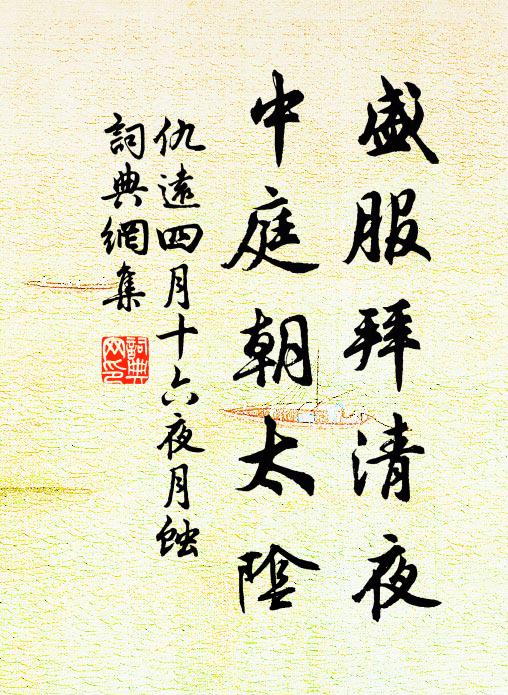 盛服拜清夜
中庭朝太陰
仇遠四月十六夜月蝕
詞典網集
詞典网印